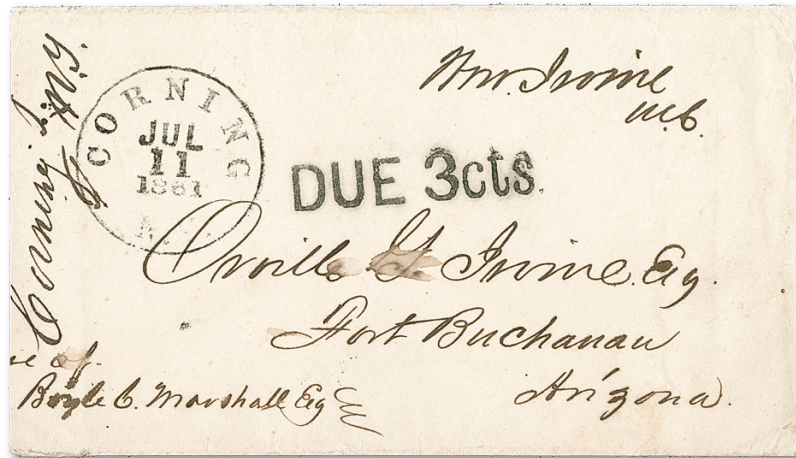 Corning
N.Y.
CORNING
JUL
11
1861
N.Y.
Wm. Irvine
M.C.
DUE 3cts.
Orville Irvine. Esq.
Fort Buchanan
Arizona.
of
Boyle C. Marshall Esq